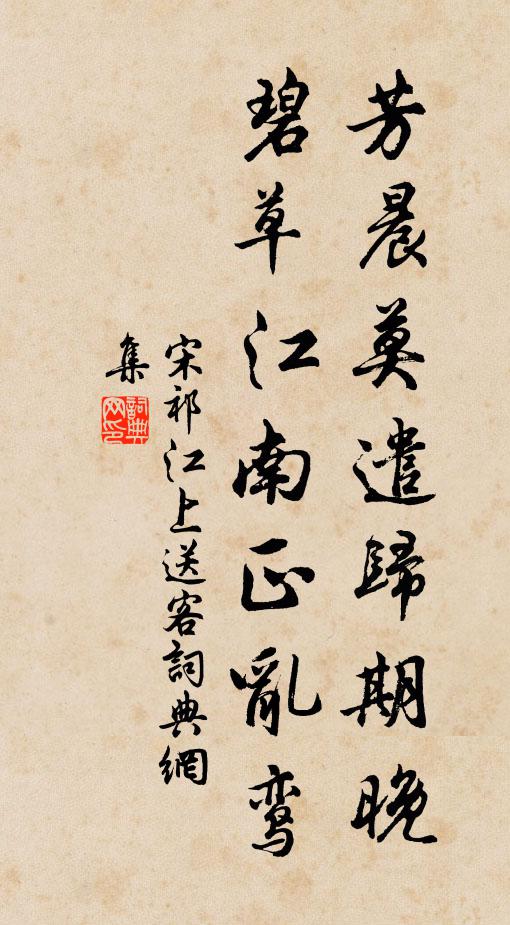 芳晨莫遣歸期晚
碧草江南正亂鸾
宋祁江上送客詞典網
集
詞典网印